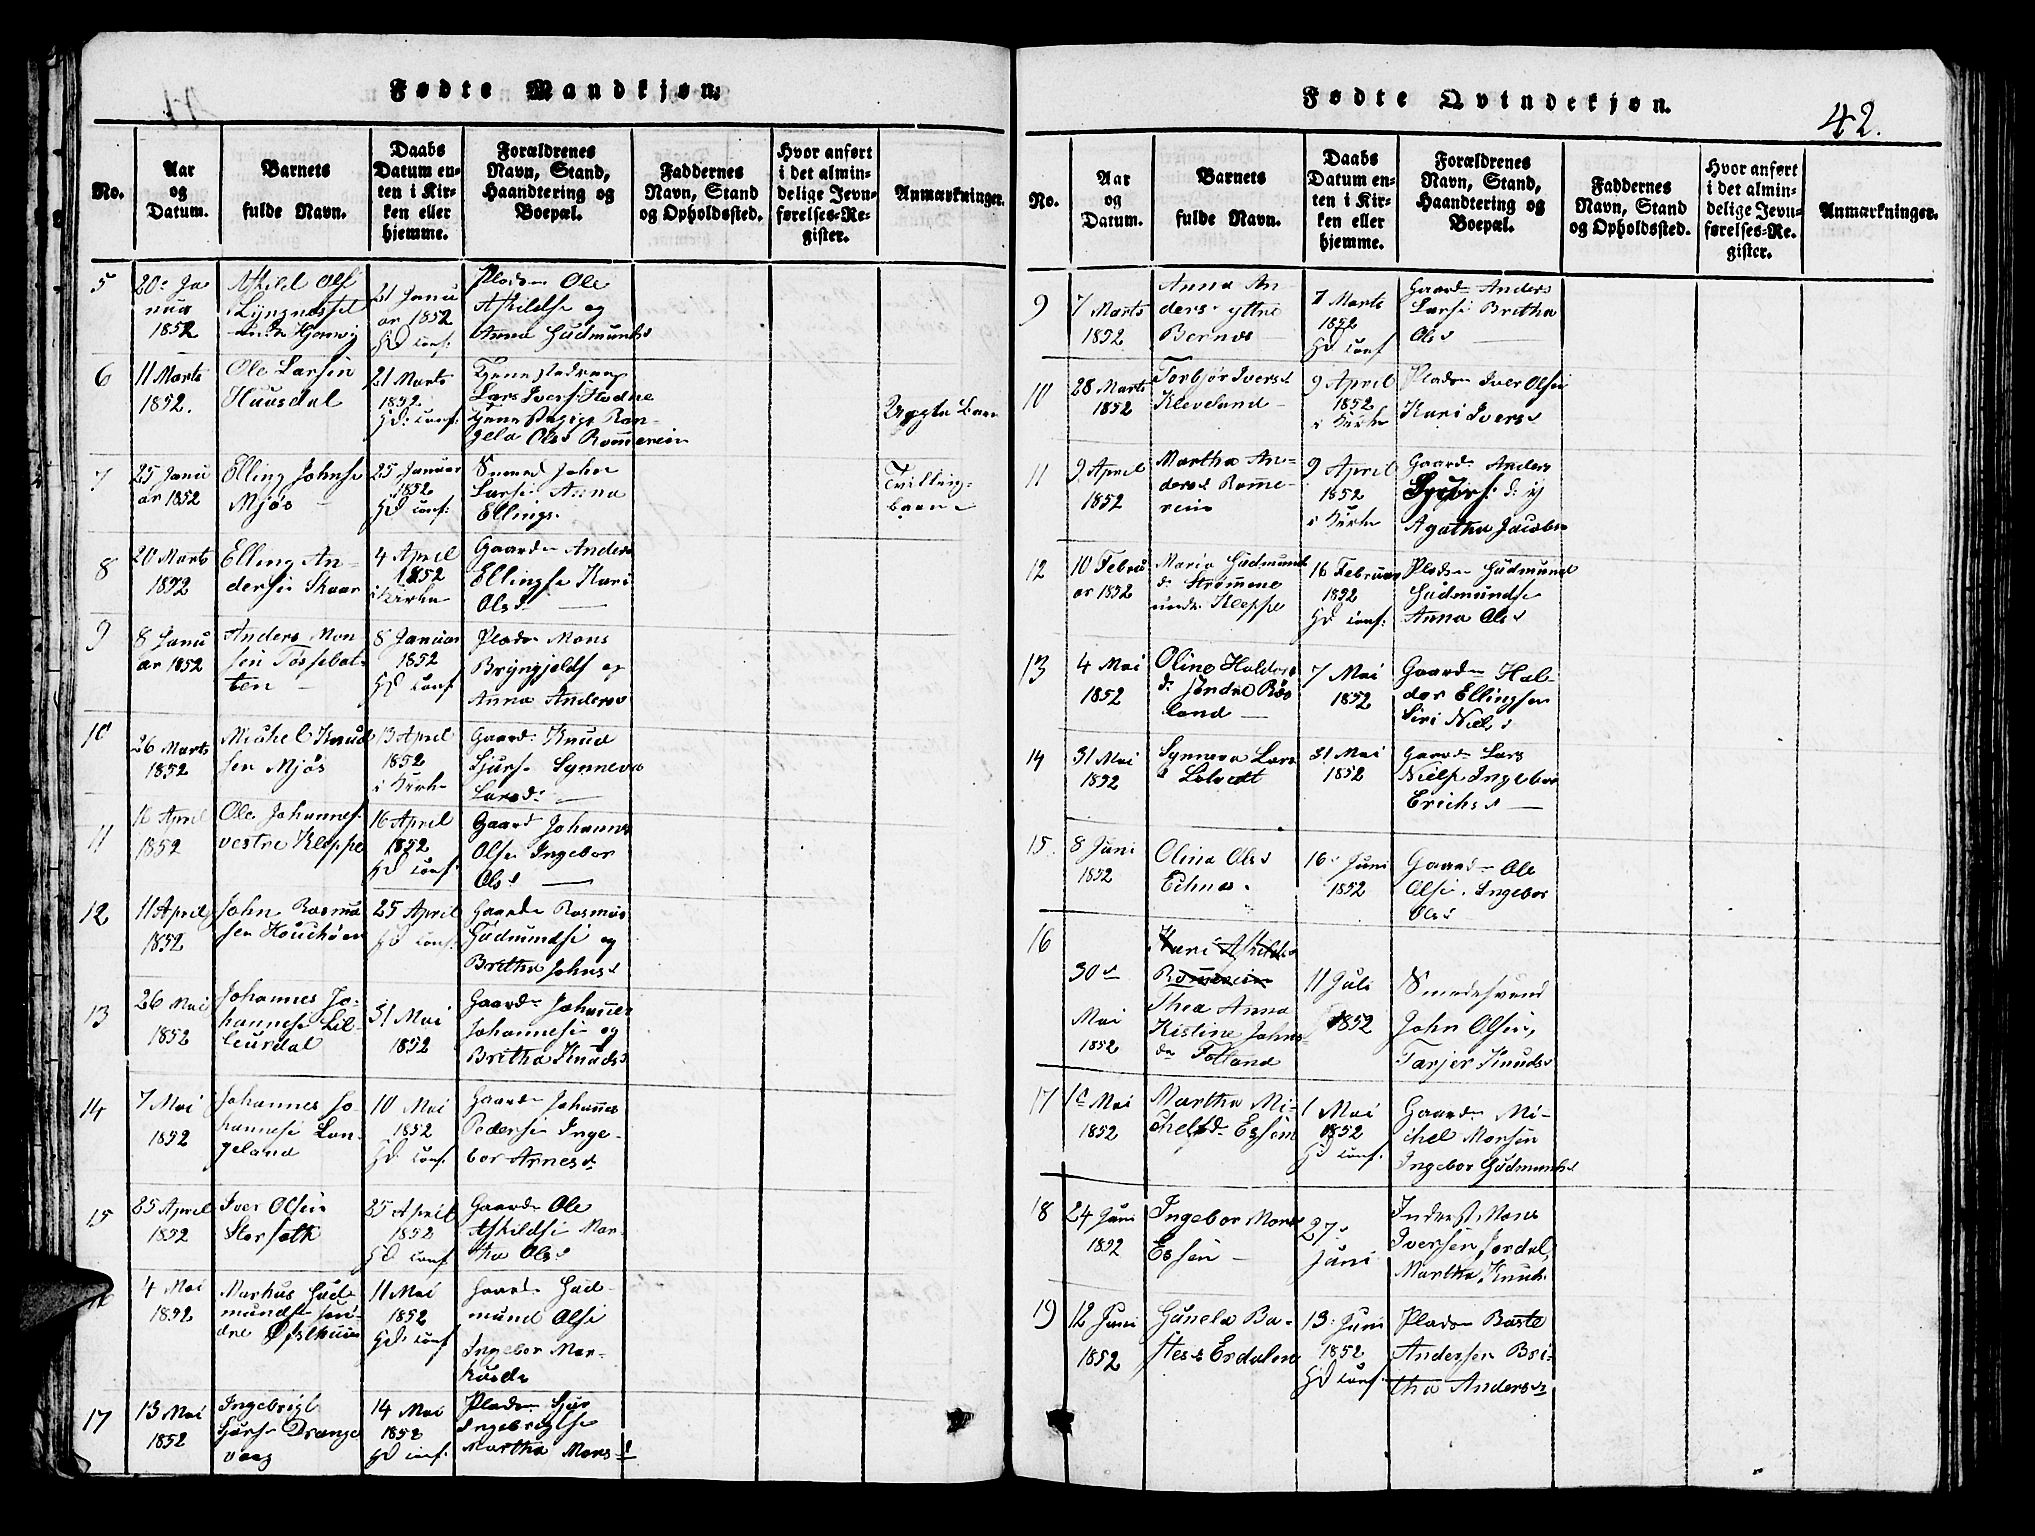 Fødte Mandkjøn.
No.
Aar
og
Datum.
Barnets
fulde Navn.
Daabs
Datum en-
ten i Kir-
ken eller
hjemme.
Forældrenes
Navn, Stand,
Haandtering og
Boepæl.
Faddernes
Navn, Stand
og Opholdssted.
Hvor anført
i det almin-
delige Jevn-
førelses-Re-
gister.
Anmærkninger.
5
20de Ja
nuar
1852
Askild Ols
21 Janu
ar 1852
HD conf:
Plads Ole
Askildse og
Anna Gudmunds
6
11 Marts
1852.
Ole Larsen
Huusdal
21 Marts
1852.
HD: conf:
Lars Ivers Hodne
gela Olsd Romerein
Uægte Barn
7
25 Janu
ar 1852
Elling Johnse
Mjøs
25 Januar
1852
HD conf:
Smed John
Larse Anna
Ellings
Tvilling-
barn
8
20 Marts
1852
Elling An-
dersen Skaar
4 April
1852
i Kirke
Gaard Anders
Ellingse Kari
Olsd.
9
8 Janu
ar 1852
Anders Mon
sen Tøssebot-
ten
8 Januar
1852
HD conf
Plads Mons
Bryngjelds og
Anna Andersd
10
26 Marts
1852
Michel Knud
sen Mjøs
13 April
1852
i Kirke
Gaard Knud
Sjurs Synneva
Larsd.
11
16 April
1852
Ole Johannes
vestre Kleppe
16 April
1852
HD conf:
Gaard Johannes
Olse Ingebor
Olsd
12
11 April
1852
John Rasmu
sen
25 April
HD conf:
Gaard Rasmus
Gudmundse og
Britha Johnsd
13
26 Mai
1852
Johannes Jo-
hannese Lil-
leurdal
31 Mai
1852
Gaard Johannes
Johannese og
Britha Knudsd
14
7 Mai
1852
Johannes Jo
hannese Lan-
geland
10 Mai
1852
HD conf.
Gaard Johannes
Pederse Inge-
bor Arnesd
15
25 April
1852
Iver Olsen
Storseth
25 April
1852
HD conf
Gaard Ole
Askildse Mar-
tha Olsd
16
4 Mai
1852
Markus Gud
munds søn-
dre Østhuus
11 Mai
1852
HD: conf
Gaard Gud-
mund Olse
Ingebor Mar-
kusdr
17
13 Mai
1852
Ingebrigt
Sjurs Drange
vaag
14 Mai
1852
HD conf:
Plads Sjur
Ingebrigtse
Martha Monsd
Fødte Qvindekjøn.
42.
No.
Aar
og
Datum.
Barnets
fulde Navn.
Daabs
Datum en-
ten i Kir-
ken eller
hjemme.
Forældrenes
Navn, Stand,
Haandtering og
Boepæl.
Faddernes
Navn, Stand
og Opholdssted.
Hvor anført
i det almin-
delige Jevn-
førelses-Re-
gister.
Anmærkninger.
9
7 Marts
1852
Anna An-
ders yttre
Bernes
7 Marts
1852
HD conf
Gaard Anders
Larse Britha
Olsd
10
28 Marts
1852
Torbjør Iversd
Kleveland
9 April
1852
i Kirke
Plads Iver Olsen
Kari Iversd
11
9 April
1852
Martha An-
dersd Rome-
rein
9 April
1852
i Kirke
Gaard Anders
Agatha Jacobsd
12
10 Febru
ar 1852
Maria Gudmunds
d. Strømene
Kleppe
16 Februar
1852
HD conf:
Plads Gudmund
Gudmundse
Anna Olsd
13
4 Mai
1852
Oline Haldors
d. søndre Røs
land
7 Mai
1852
Gaard Hal-
dor Ellingsen
Siri Nielsd
14
31 Mai
1852
Synneva Lars
d Lolvedt
31 Mai
1852
Gaard Lars
Niels Ingebor
Erichsd
15.
8 Juni
1852
Olina Olsd
Echnes.
16. Juni
1852
Gaard Ole
Olse. Ingebor
Olsd
16
30te
Mai
1852
Kari Askildsd
Romerein
Thea Anna
Kistine Johns
dr Folland
11 Juli
1852
Smedesvend
John Olsen,
Tarjer Knudsd
17
1te Mai
1852
Martha Mi-
chelsd. Essen
1 Mai
1852
HD conf.
Gaard Mi-
chel Monsen
Ingebor Gudmundsd
18
24 Juni
1852
Ingebor Monsd
Essen
27.
Juni
Inderst Mons
Iversen Jordal,
Martha Knuds
19
12 Juni
1852
Gunela Ba-
stesd Erdalen
13. Juni
1852
HD conf.
Plads Baste
Andersen Bri-
tha Andersd